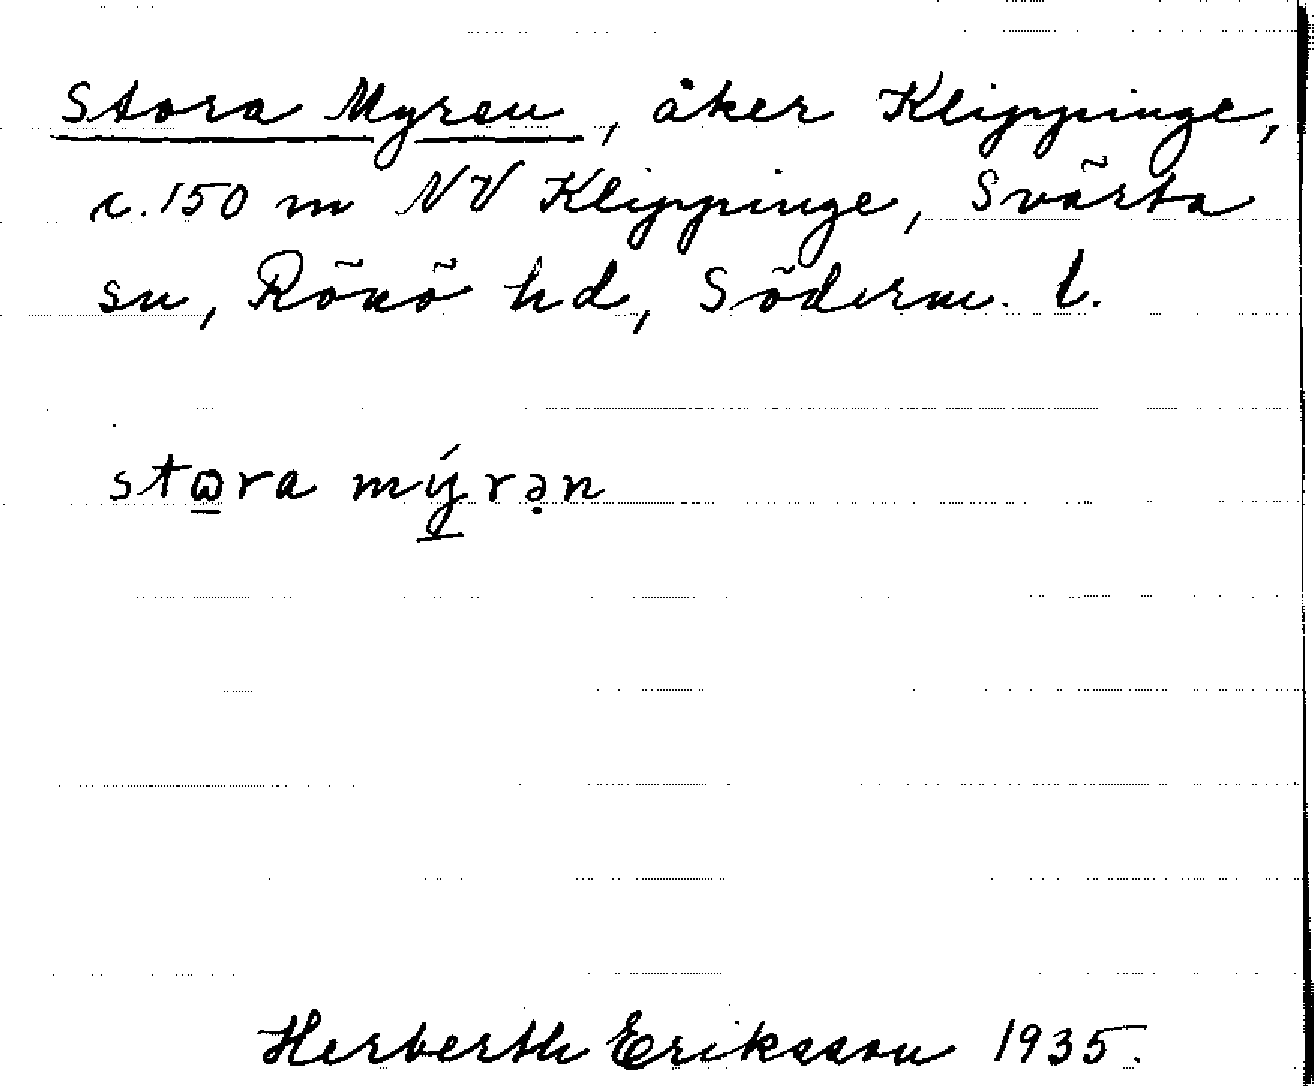 Stora Myren, åker Klippinge,
c. 150 m NV Klippinge, Svärta
sn, Rönö hd, Söderm. l.
stꞷ̲ra mý̲rə̣n
Herberth Eriksson 1935.